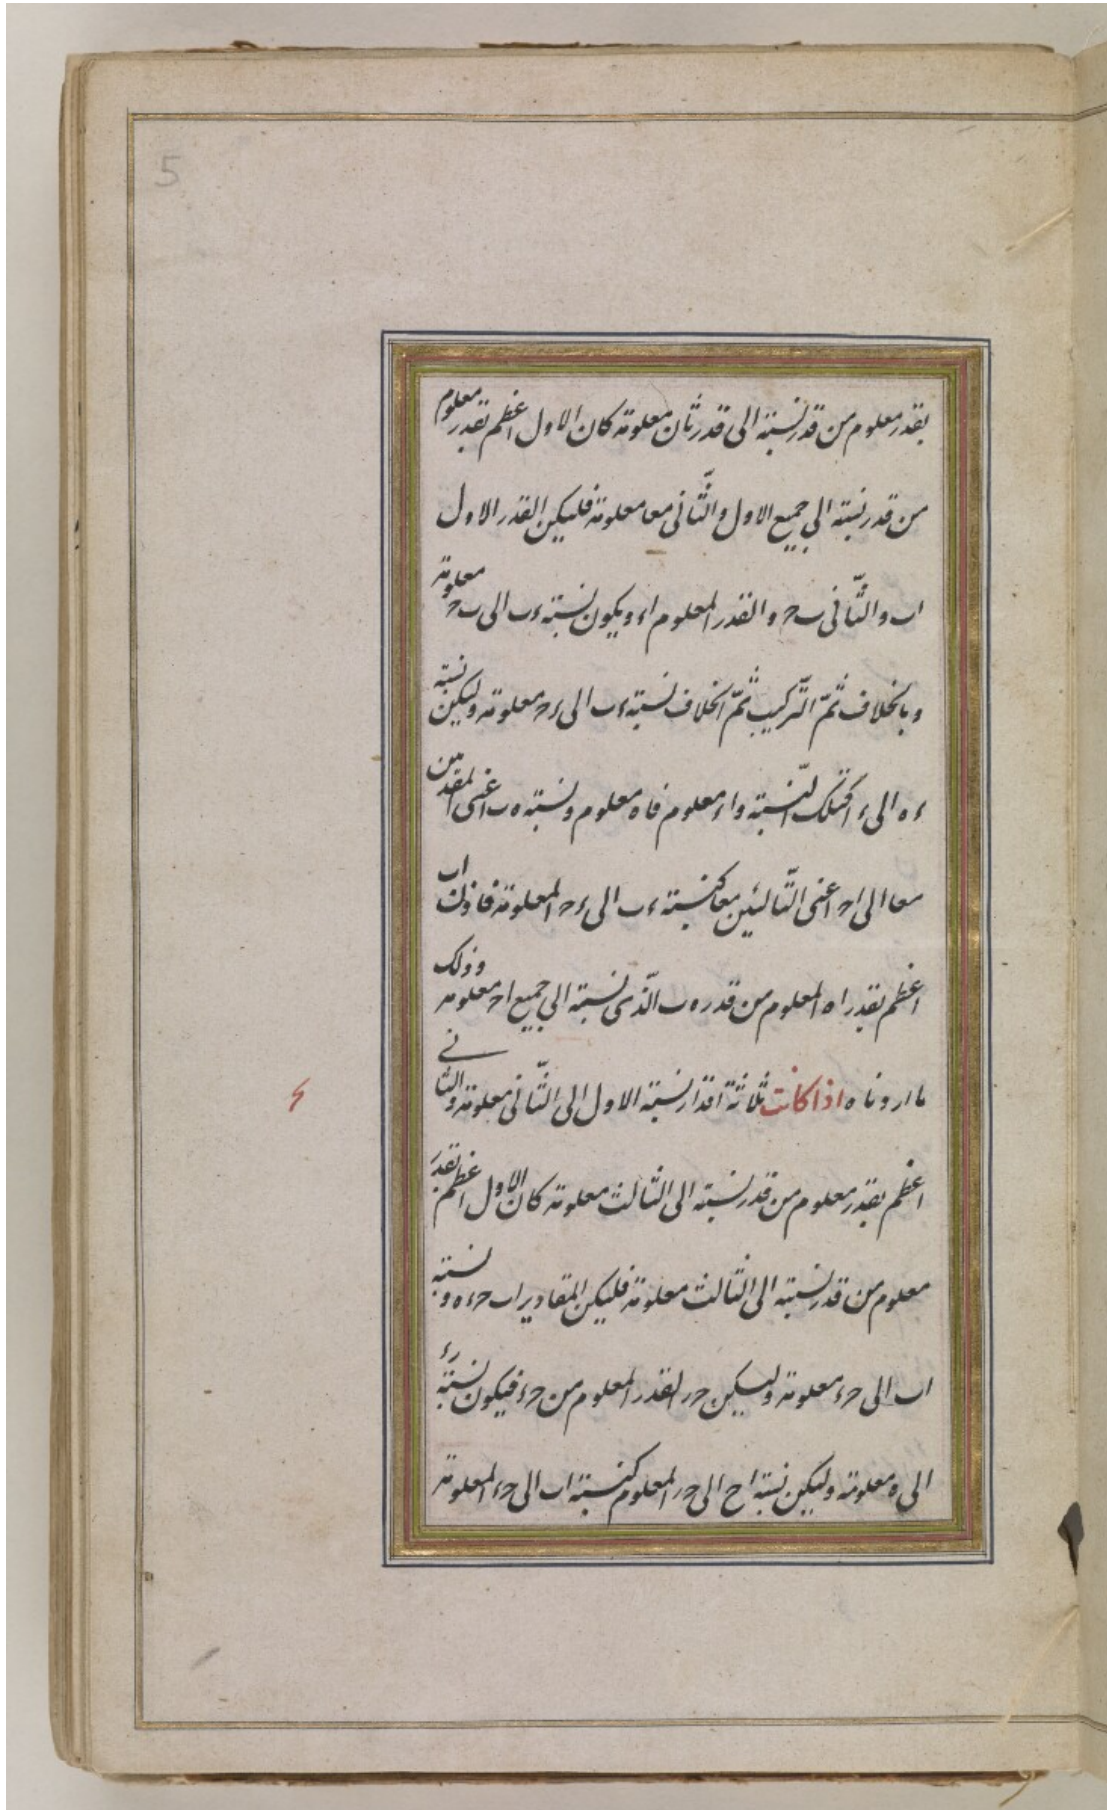 5
بقدر معلوم من قدر نسبته الى قدر ثان معلومة كان الاول اعظم بقدر معلوم
من قدر نسبته الى جميع الاول والثّانى معا معلومة فليكن القدر الاول
اب والثّانى ب‍ح والقدر المعلوم اء ويكون نسبة ءب الى ب‍ح معلومة
وبالخلاف ثمّ التّركيب ثمّ الخلاف نسبة ءب الى ءح معلومة وليكن نسبة
ءه الى ء‍ا كتلك النّسبة واء معلوم فاه معلوم ونسبة ه‍ب اعنى المقدمين
معا الى اح اعنى التّاليين معا كنسبة ءب الى ءح المعلومة فاذن اب
اعظم بقدر اه المعلوم من قدر ه‍ب الّذى نسبته الى جميع اح معلومة وذلك
ما اردناه اذا كانت ثلاثة اقدار نسبة الاول الى الثّانى معلومة والثانى
اعظم بقدر معلوم من قدر نسبته الى الثالث معلومة كان الاول اعظم بقدر
معلوم من قدر نسبته الى الثالث معلومة فليكن المقادير اب ح‍ء ه ونسبة
اب الى ح‍ء معلومة وليكن ح‍ر القدر المعلوم من ح‍ء فيكون نسبة رء
الى ه معلومة وليكن نسبة اح الى ح‍ر المعلوم كنسبة اب الى ح‍ء المعلومة